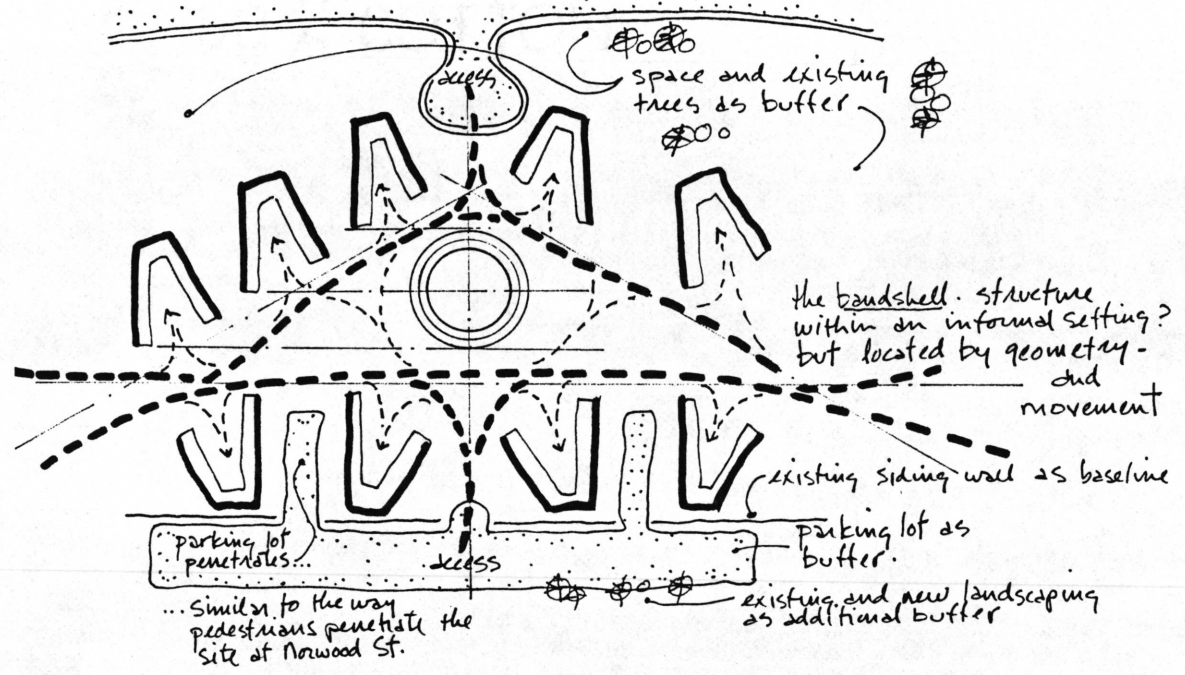 access
space and existing
trees as buffer
the bandshell. structure
within an informal setting?
but located by geometry -
and
movement
existing siding wall as baseline
parking lot as
buffer.
parking lot
penetrates...
access
existing and new landscaping
as additional buffer
... similar to the way
pedestrians penetrate the
site at Norwood St.